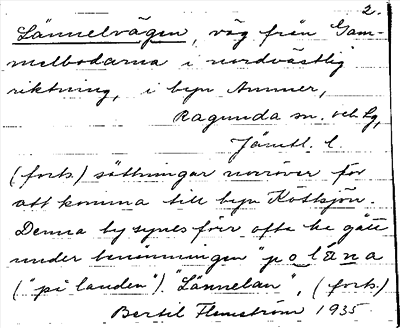 2.
Lännelvägen, väg från Gam-
melbodarna i nordvästlig
riktning, i byn Ammer,
Ragunda sn. och tg,
Jämtl. l.
(forts.) sättningar norröver för
att komma till byn Köttsjön.
Denna by synes förr ofta ha gått
under benämningen "polána
("på landen"). "Lännelan", (forts.)
Bertil Flemström 1935.